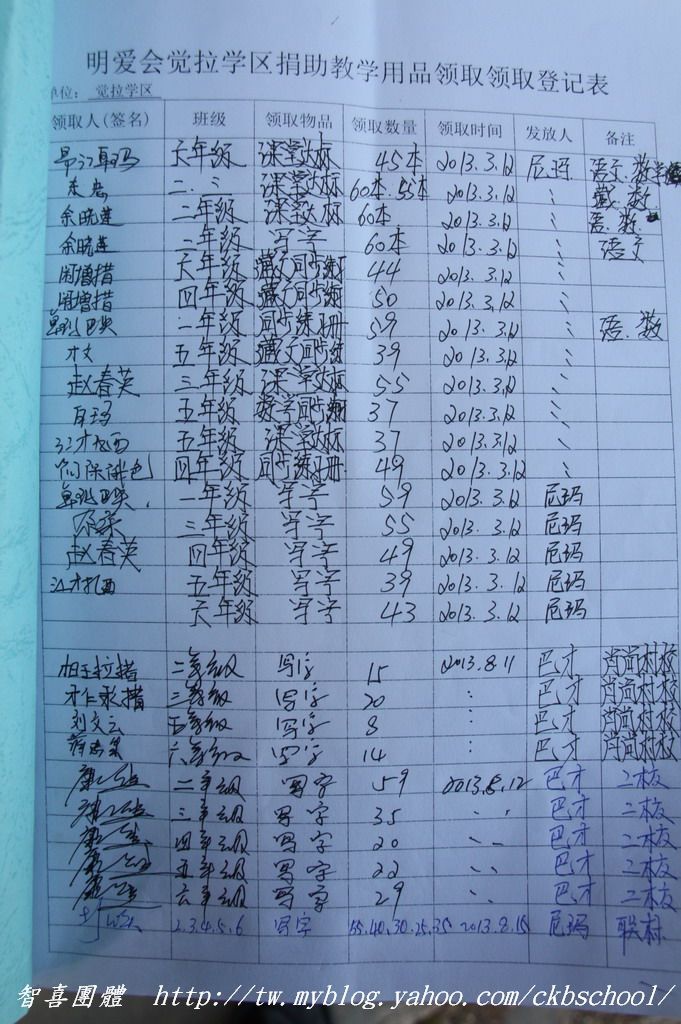 明爱会觉拉学区捐助教学用品领取领取登记表
单位： 觉拉学区
领取人(签名) 班级 领取物品 领取数量 领取时间 发放人 备注
六年级 课堂达标 45本 2013.3.12 尼玛 语文.数学
二.三 课堂达标 60本.55本 2013.3.12 〃
余晓莲 二年级 课堂达标 60本 2013.3.12 〃 语.数
余晓莲 二年级 写字 60本 2013.3.12 〃 语文
周增措 六年级 藏文同步练 44 2013.3.12 〃
周增措 四年级 藏文同步练 50 2013.3.12 〃
一年级 同步练册 59 2013.3.12 〃 语.数
才文 五年级 藏文同步练 39 2013.3.12 〃
赵春英 三年级 课堂达标 55 2013.3.12 〃
白玛 五年级 数学同步 37 2013.3.12 〃
江才扎西 五年级 课堂达标 37 2013.3.12 〃
四年级 同步练册 49 2013.3.12 〃
一年级 写字 59 2013.3.12 尼玛
三年级 写字 55 2013.3.12 尼玛
赵春英 四年级 写字 49 2013.3.12 尼玛
江才扎西 五年级 写字 39 2013.3.12 尼玛
六年级 写字 43 2013.3.12 尼玛
二年级 写字 15 2013.8.11 巴才 尚村校
三年级 写字 20 : 巴才 尚村校
刘文云 五年级 写字 8 : 巴才 尚村校
六年级 写字 14 : 巴才 尚村校
二年级 写字 59 2013.8.12 巴才 二校
三年级 写字 35 〃 巴才 二校
四年级 写字 20 〃 巴才 二校
五年级 写字 22 〃 巴才 二校
六年级 写字 29 〃 巴才 二校
2.3.4.5.6 写字 55.40.30.25.35 2013.8.15 尼玛 联村
智喜團體 http://tw.myblog.yahoo.com/ckbschool/